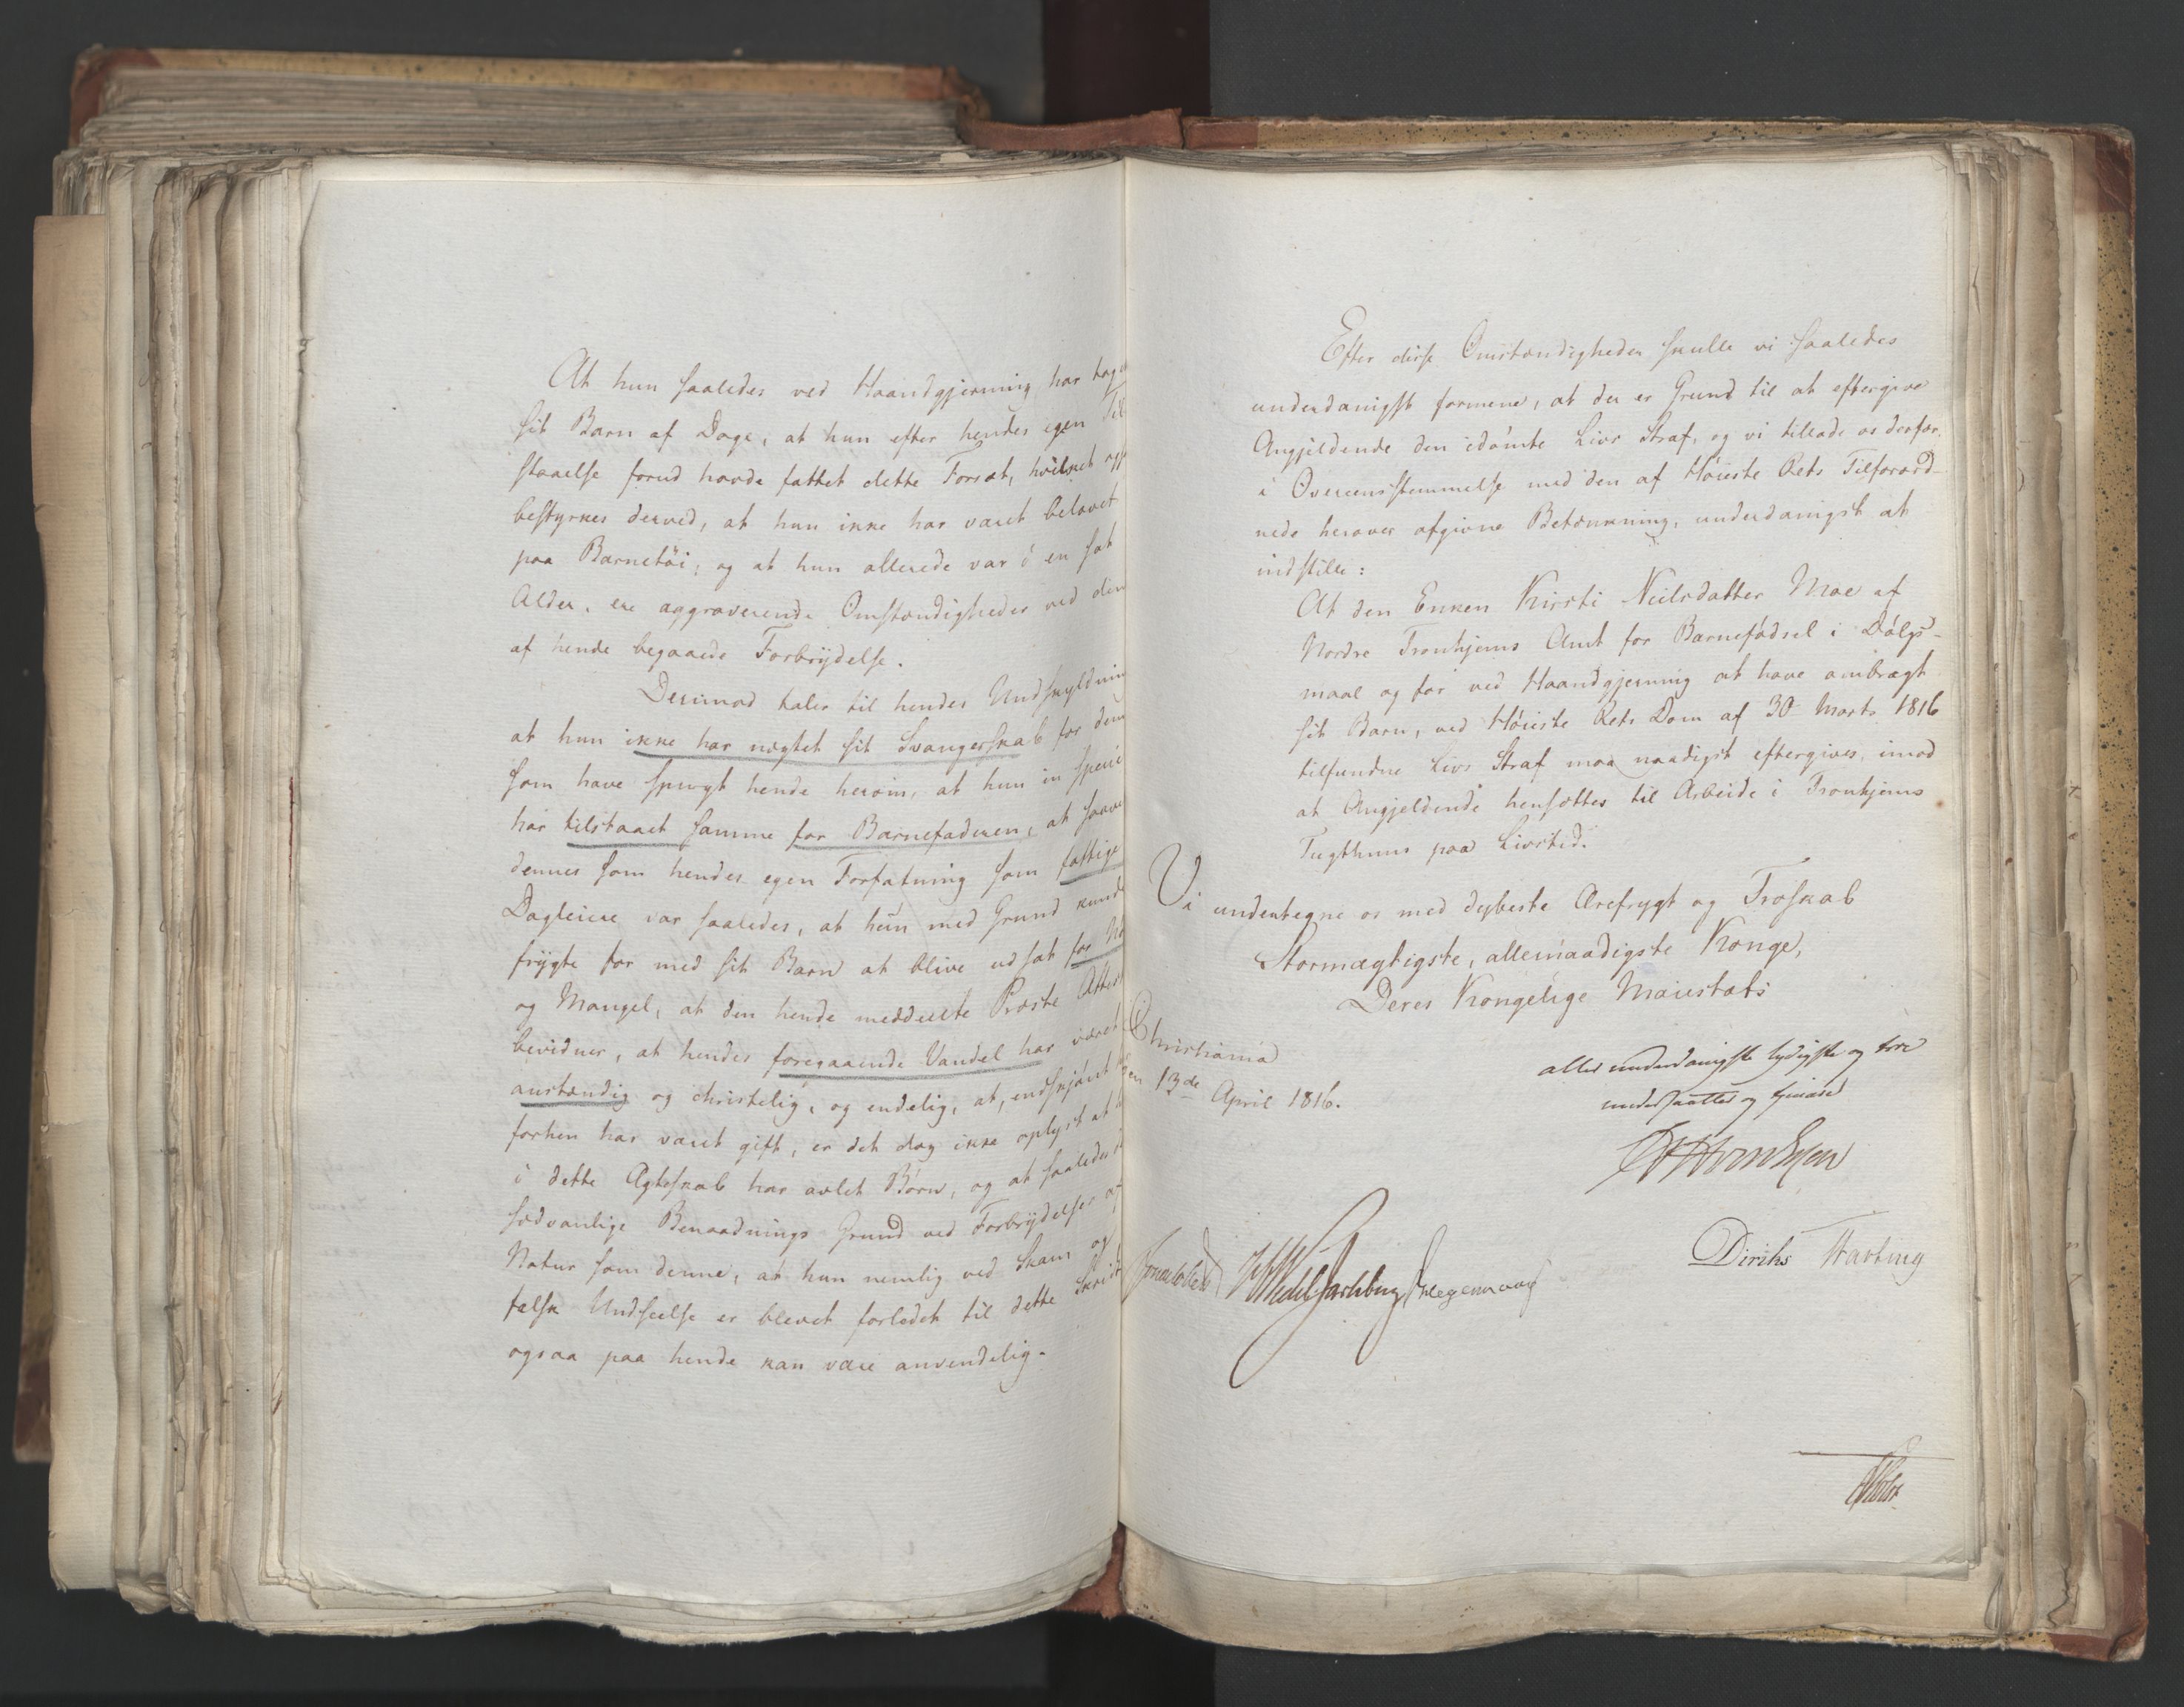 At hun saaledes ved Haandgjerning har tag
sit Barn af Dage, at hun efter hendes egen Til
staaelse forud havde fattet dette Forsæt, hvilket og
bestyrkes derved, at hun ikke har været belavet
paa Barnetöi, og at hun allerede var i en sat
Alder, ere aggraverende Omstændigheder ved den
af hende begaaede Forbrydelse.
Derimod taler til hendes Undskyldnin
at hun ikke har nægtet sit Svangerskab for dem
som have spurgt hende herom, at hun in specie
har tilstaaet samme for Barnefaderen, at saavel
dennes som hendes egen Forfatning som fattige
Dagleiere var saaledes, at hun med Grund kunde
frygte for med sit Barn at blive udsat for Nö
og Mangel, at den hende meddeelte Præste Attest
bevidner, at hendes foregaaende Vandel har været
anstændig og christelig, og endelig, at, endskjönt
forhen har været gift, er det dog ikke oplyst at
i dette Ægteskab har avlet Börn, og at saaledes
sædvanlige Benaadnings Grund ved Forbrydelser af
Natur som denne, at hun nemlig ved Skam og
falsk Undseelse er blevet forledet til dette Skridt
ogsaa paa hende kan være anvendelig.
Efter disse Omstændigheder skulle vi saaledes
underdanigst formene, at der er Grund til at eftergive
Angjeldende den idömte Livs Straf, og vi tillade os derfor,
i Overeensstemmelse med den af Höieste Rets Tilforord-
nede herover afgivne Betænkning, underdanigst at
indstille:
At den Enken Kirsti Neilsdatter Moe af
Nordre Tronhjems Amt for Barnefödsel i Dölgs-
maal og for ved Haandgjerning at have ombragt
sit Barn, ved Höieste Rets Dom af 30 Marts 1816
tilfundne Livs Straf maa naadigst eftergives, imod
at Angjeldende hensættes til Arbeide i Tronhjems
Tugthuus paa Livstid.
Vi undertegne os med dybeste Ærefrygt og Troskab
Stormægtigste, allernaadigste Konge,
Deres Kongelige Maiestæts
Christiania
den 13de April 1816.
aller underdanigste lydigste og troe
undersaatter og tjenere
Diriks Hartung